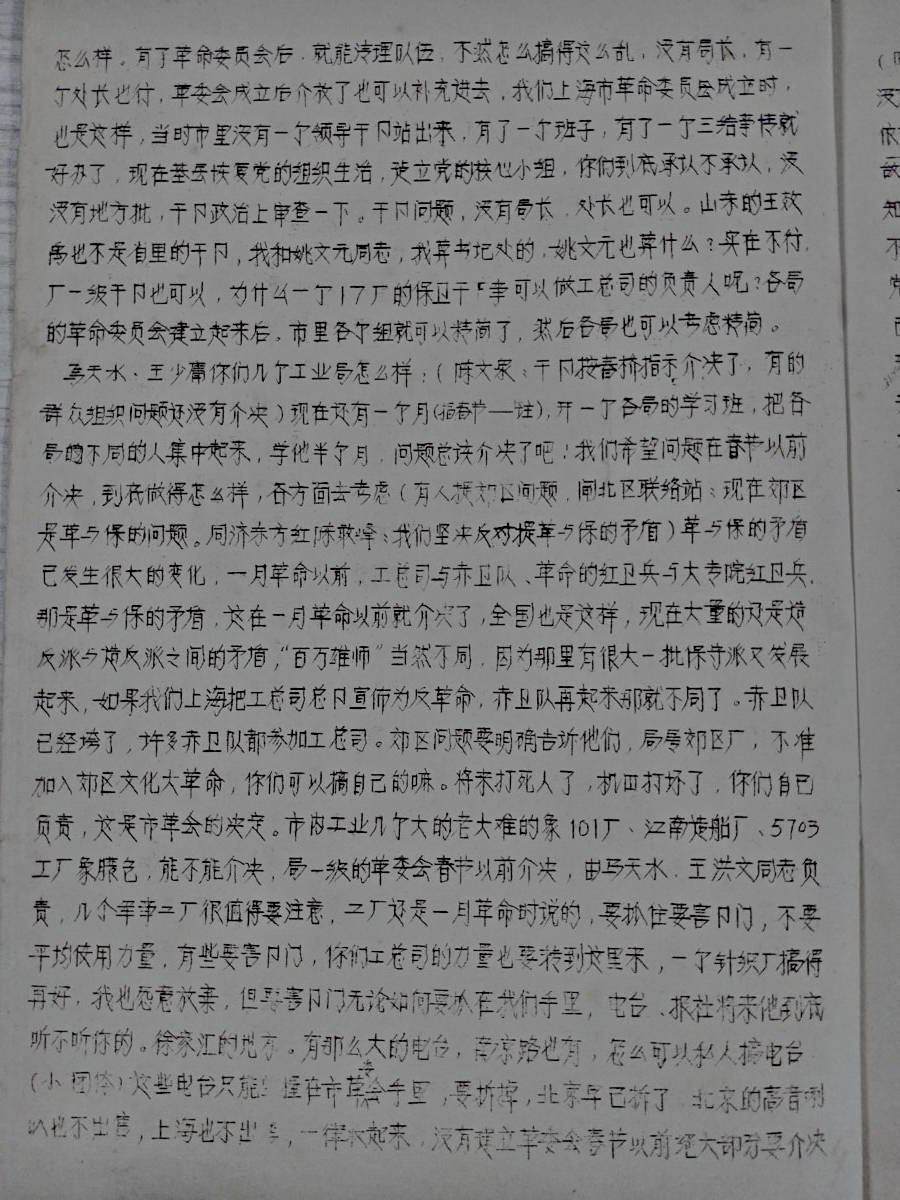 怎么样。有了革命委员会后，就能清理队伍，不然怎么搞得这么乱，没有局长，有一
个处长也行，革委会成立后介放了也可以补充进去，我们上海市革命委员会成立时，
也是这样，当时市里没有一个领导干卩站出来，有了一个班子，有了一个三结合情就
好办了，现在基层恢复党的组织生活，建立党的核心小组，你们到底承认不承认，没
没有地方批，干卩政治上审查一下。干卩问题，没有局长，处长也可以。山东的王效
禹也不是省里的干卩，我和姚文元同志，我算书记处的，姚文元也算什么？实在不行，
厂一级干卩也可以，为什么一个17厂的保卫干事可以做工总司的负责人呢？各局
的革命委员会建立起来后。市里各个组就可以精简了，然后各局也可以考虑精简。
马天水、王少庸你们几个工业局怎么样：（陈文泉：干卩按春桥指示介决了，有的
群众组织问题还没有介决）现在还有一个月(指春节——注)，开一个各局的学习班，把各
局的不同的人集中起来，学他半个月，问题总该介决了吧！我们希望问题在春节以前
介决，到底做得怎么样，各方面去考虑（有人提郊区问题，闸北区联络站：现在郊区
是革与保的问题。同济东方红陈敢峰：我们坚决反对提革与保的矛盾）革与保的矛盾
已发生很大的变化，一月革命以前，工总司与赤卫队、革命的红卫兵与大专院红卫兵，
那是革与保的矛盾，这在一月革命以前就介决了，全国也是这样，现在大量的是造
反派与造反派之间的矛盾，“百万雄师”当然不同，因为那里有很大一批保守派又发展
起来，如果我们上海把工总司总卩宣佈为反革命，赤卫队再起来那就不同了。赤卫队
已经垮了，许多赤卫队都参加工总司。郊区问题要明确告诉他们，局导郊区厂，不准
加入郊区文化大革命，你们可以搞自己的嘛。将来打死人了，机四打坏了，你们自己
负责，这是市革会的决定。市内工业几个大的老大难的象101厂、江南造船厂、5703
工厂象颜色，能不能介决，局一级的革委会春节以前介决，由马天水、王洪文同志负
责，几个军事工厂很值得要注意，工厂还是一月革命时说的，要抓住要害卩门，不要
平均使用力量，有些要害卩门，你们工总司的力量也要转到这里来，一个针织厂搞得
再好，我也愿意放弃，但要害卩门无论如何要抓在我们手里，电台、报社将来他到底
听不听你的。徐家汇的地方。有那么大的电台，南京路也有，怎么可以私人搞电台
这些电台只能掌握在市革委会手里，要拆掉，北京早已拆了，北京的高音喇
叭也不出售，上海也不出售，一律收起来，没有建立革委会春节以前绝大部分要介决